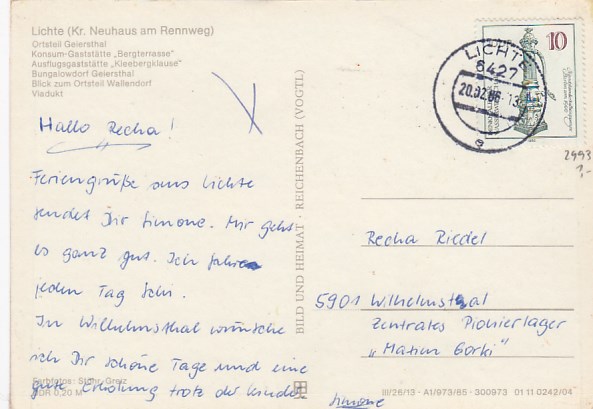 Lichte (Kr. Neuhaus am Rennweg)
Ortsteil Geiersthal
Konsum-Gaststätte „Bergterrasse"
Ausflugsgaststätte „Kleebergklause"
Bungalowdorf Geiersthal
Blick zum Ortsteil Wallendorf
Viadukt
Hallo Recha!
Feriengrüße aus Lichte
sendet Dir Simone. Mir geht
es ganz gut. Ich fahre
jeden Tag Schi.
In Wilhelmsthal wünsche
ich Dir schöne Tage und eine
gute Erholung trotz der Kinder
Simone
Farbfotos: Stöhr, Greiz
DDR 0,20 M
BILD UND HEIMAT · REICHENBACH (VOGTL)
LICHTE
6427
20.02.86-13
e
10
2993
1,-
Recha Riedel
5901 Wilhelmsthal
Zentrales Pionierlager
„Maxim Gorki"
III/26/13 - A1/973/85 - 300973 01 11 0242/04